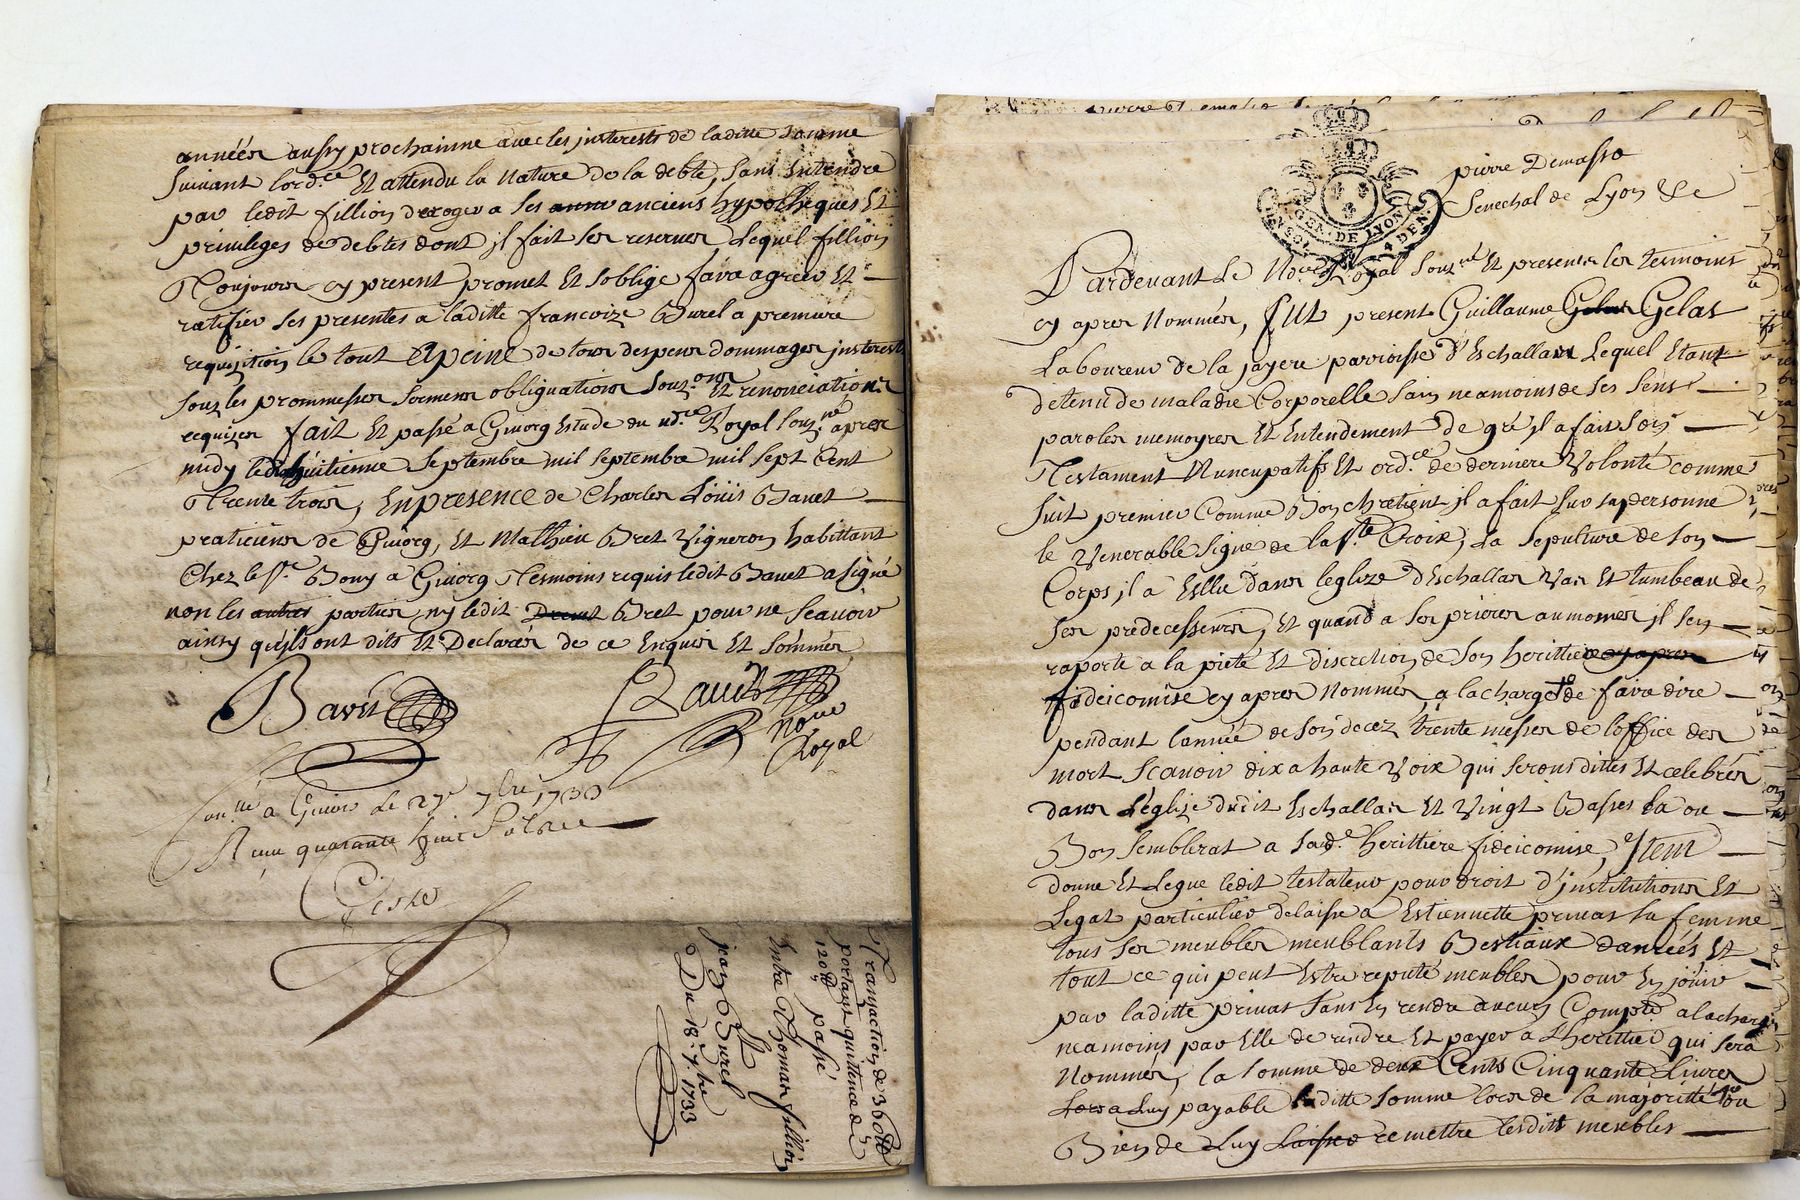 années aussy prochainne avec les jnterests de laditte somme
suivant lord.ce Et attendu la Nature de la debte, sans Entendre
par ledit fillion deroger a ses anciens hypotheques Et
privileges de debtes dont jl fait ses reserves Lequel fillion
Toujours cy present promet Et soblige faire agreer Et
ratifier ses presentes a laditte francoize Burel a premiere
requisition le tout Apeine de tous despens dommages jnterests
souz les prommesses sermens obliguations souz.ons Et renonciations
requises fait Et passé a Givorg Estude du nd.re Royal souz.né apres
midy le dixhuitienne Septembre mil septembre mil sept Cent
Trente trois, En presence de Charles Loüis Bavet
praticiens de Givorg, Et Mathieu Bret Vigneron habittant
Chez le Sr. Bony a Givorg Tesmoins requis ledit Bavet a signé
non les autres parties ny ledit Bret pour ne scavoir
ainsy qu'ils ont dits Et Declarés de ce Enquis Et sommés
Bavet
nore
Royal
a Givors Le 27e 7bre 1733
Reçu quarante huit sols
Transaction de 360tt
portant quittence de
120tt passé
Entre Thomas fillion
Et
jean Burel
Du 18. 7.bre 1733
pierre Demasso
Senechal de Lyon &c
GEN. DE LYON
4 DEN.
Pardevant Le No.re Royal souz.né Et presents les tesmoins
cy apres Nommés, fUt present Guillaume Gelas
Laboureur de la jayere parroisse d'Eschallas Lequel Etant
detenu de maladie Corporelle sain neamoins de ses sens
paroles memoyres Et Entendement de gré jl a fait son
Testament Nuncupatifs Et ord.ce de derniere Volonté comme
suit premier Comme Bon chretient jl a fait sur sa personne
le Venerable signe de la Ste Croix, La sepulture de son
Corps jl a Esllu dans leglize d'Eschallas Vas Et tumbeau de
ses predecesseurs, Et quand a ses prieres aumones jl sen
raporte a la pieté Et discretion de son herittiere
fideicomise cy apres Nommés, a la charge de faire dire
pendant lannée de son decez trente messes de loffice des
mort scavoir dix a haute Voix qui serons dittes Et celebrées
dans L'églize dudit Eschallas Et Vingt Basses la ou
Bon semblerat a sad.e herittiere fideicomise, Jtem
donne Et Legue ledit testateur pour droit d'jnstitutions Et
Legat particulier delaisse a Estiennette primas sa femme
tous ses meubles meublants Bestiaux danrées Et
tout ce qui peut Estre reputé meubles pour En jouir
par laditte primas sans En rendre aucun Compte a la charge
neamoins par Elle de rendre Et payer a L'herittier qui sera
Nommés, la somme de deux Cents Cinquante Livres
a Luy payable laditte somme lors de la majoritté ou
Bien de Luy remettre lesdits meubles